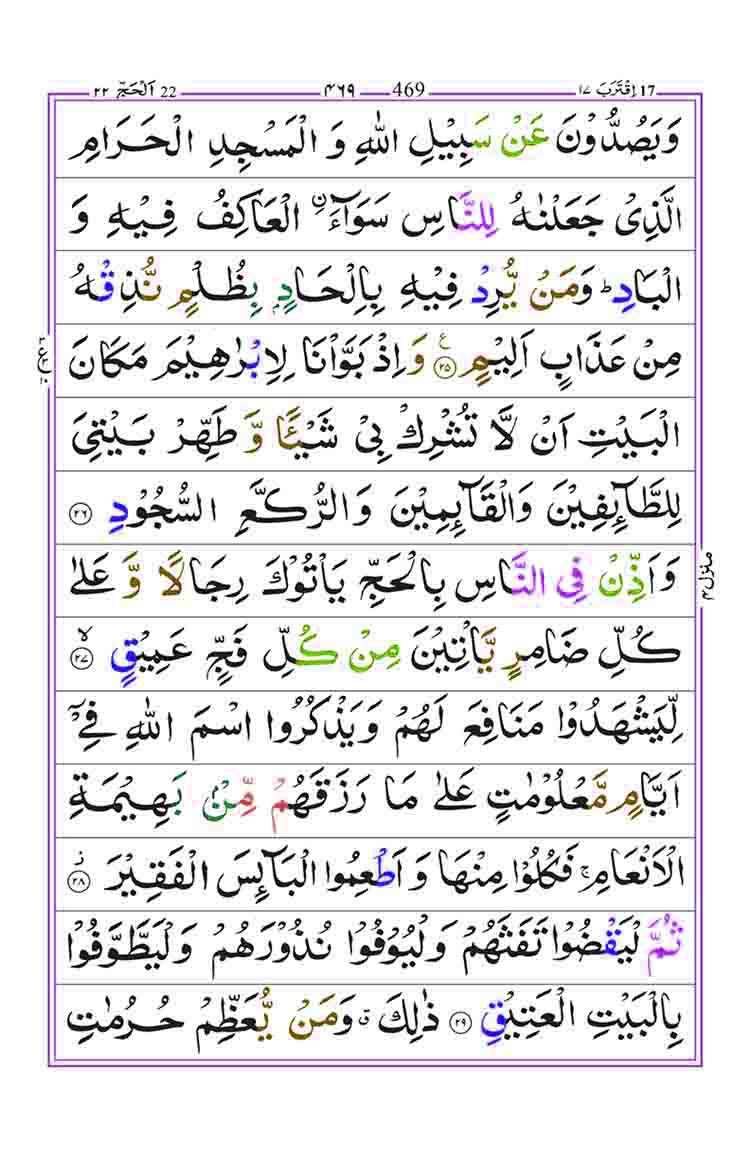 17 اِقْتَرَبَ ١٧ 469 ۴۶۹ 22 اَلْحَجّ ٢٢
وَيَصُدُّوْنَ عَنْ سَبِيْلِ اللّٰهِ وَ الْمَسْجِدِ الْحَرَامِ
الَّذِىْ جَعَلْنٰهُ لِلنَّاسِ سَوَآءَ ۨ الْعَاكِفُ فِيْهِ وَ
الْبَادِ ؕ وَمَنْ يُّرِدْ فِيْهِ بِاِلْحَادٍۭ بِظُلْمٍ نُّذِقْهُ
مِنْ عَذَابٍ اَلِيْمٍ ۠ ‏﴿۲۵﴾ وَ اِذْ بَوَّاْنَا لِاِبْرٰهِيْمَ مَكَانَ
الْبَيْتِ اَنْ لَّا تُشْرِكْ بِىْ شَيْئًا وَّ طَهِّرْ بَيْتِىَ
لِلطَّآئِفِيْنَ وَالْقَآئِمِيْنَ وَالرُّكَّعِ السُّجُوْدِ ﴿۲۶﴾
وَاَذِّنْ فِى النَّاسِ بِالْحَجِّ يَاْتُوْكَ رِجَالًا وَّ عَلٰى
كُلِّ ضَامِرٍ يَّاْتِيْنَ مِنْ كُلِّ فَجٍّ عَمِيْقٍ ۙ ﴿۲۷﴾
لِّيَشْهَدُوْا مَنَافِعَ لَهُمْ وَيَذْكُرُوا اسْمَ اللّٰهِ فِىْۤ
اَيَّامٍ مَّعْلُوْمٰتٍ عَلٰى مَا رَزَقَهُمْ مِّنْۢ بَهِيْمَةِ
الْاَنْعَامِ ۚ فَكُلُوْا مِنْهَا وَ اَطْعِمُوا الْبَآئِسَ الْفَقِيْرَ ۖ ﴿۲۸﴾
ثُمَّ لْيَقْضُوْا تَفَثَهُمْ وَلْيُوْفُوْا نُذُوْرَهُمْ وَلْيَطَّوَّفُوْا
بِالْبَيْتِ الْعَتِيْقِ ﴿۲۹﴾ ذٰلِكَ ۗ وَمَنْ يُّعَظِّمْ حُرُمٰتِ
منزل۴